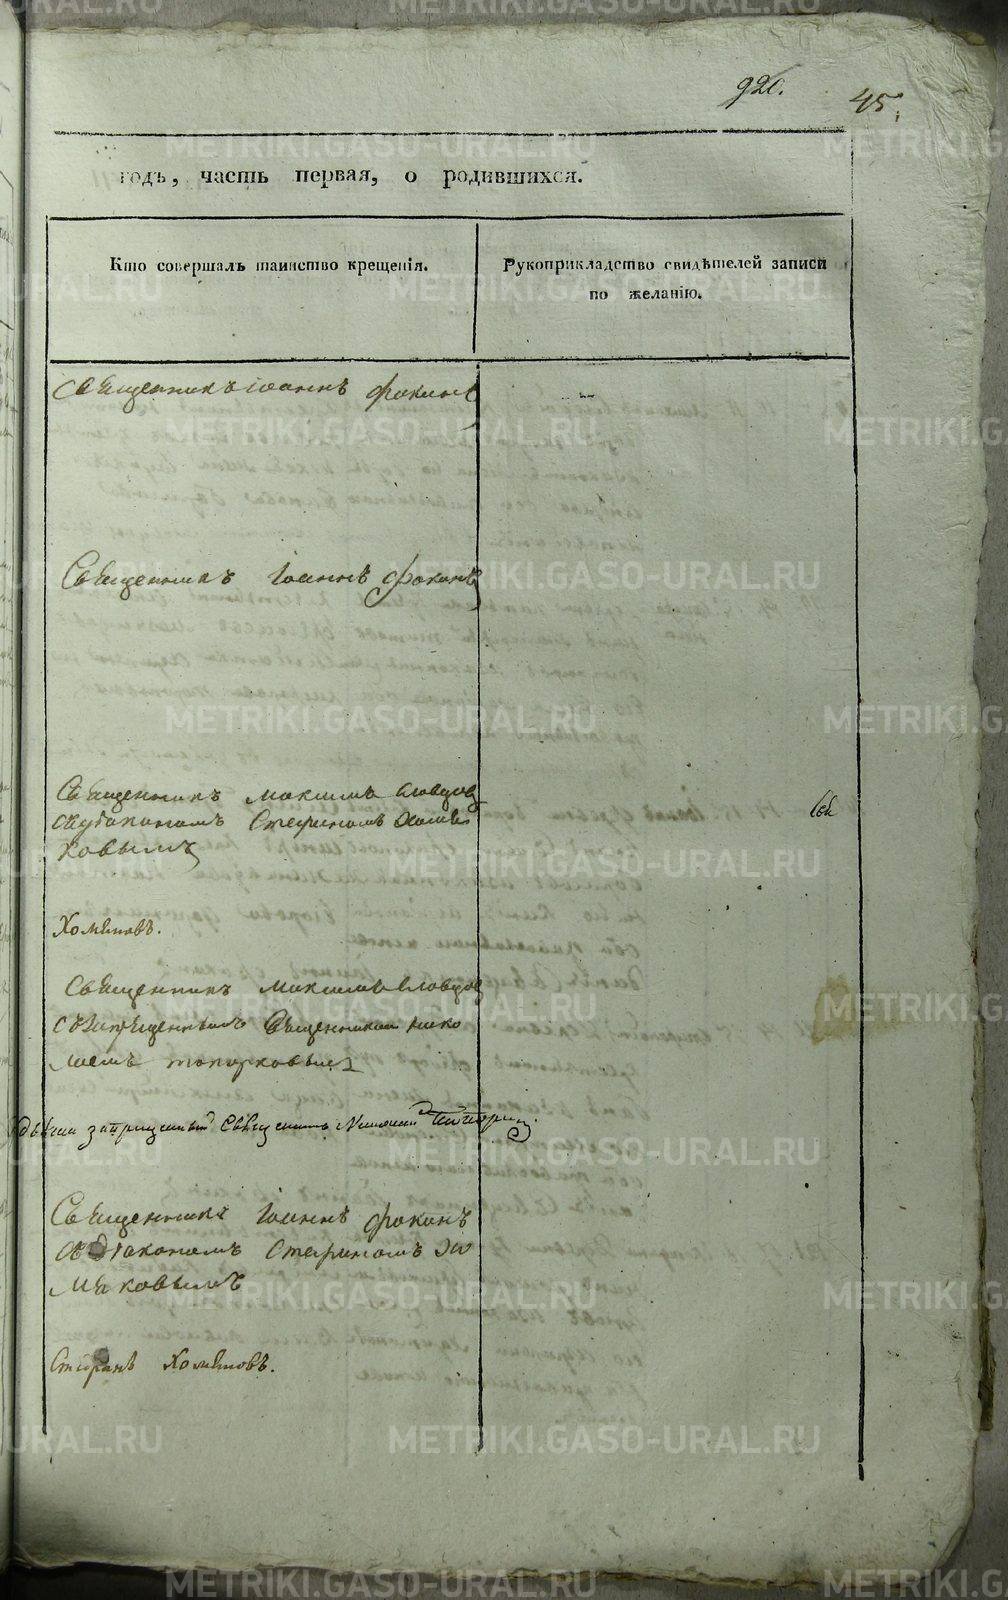 920.
45.
годъ, часть первая, о родившихся.
Кто совершалъ таинство крещенія.
Рукоприкладство свидѣтелей записи
по желанію.
Священникъ Іоаннъ Фокинъ
Священникъ Іоаннъ Фокинъ
Священникъ Максимъ Словцов
Стефаномъ Хомя
ковымъ
Хомяковъ.
Священникъ Максимъ Словцов
съ запрещеннымъ Священникомъ Нико
лаемъ Топорковымъ
запрещенный Священникъ Николай
Священникъ Іоаннъ Фокинъ
съ діакономъ Стефаномъ Хо
мяковымъ
Стефанъ Хомяковъ.
METRIKI.GASO-URAL.RU